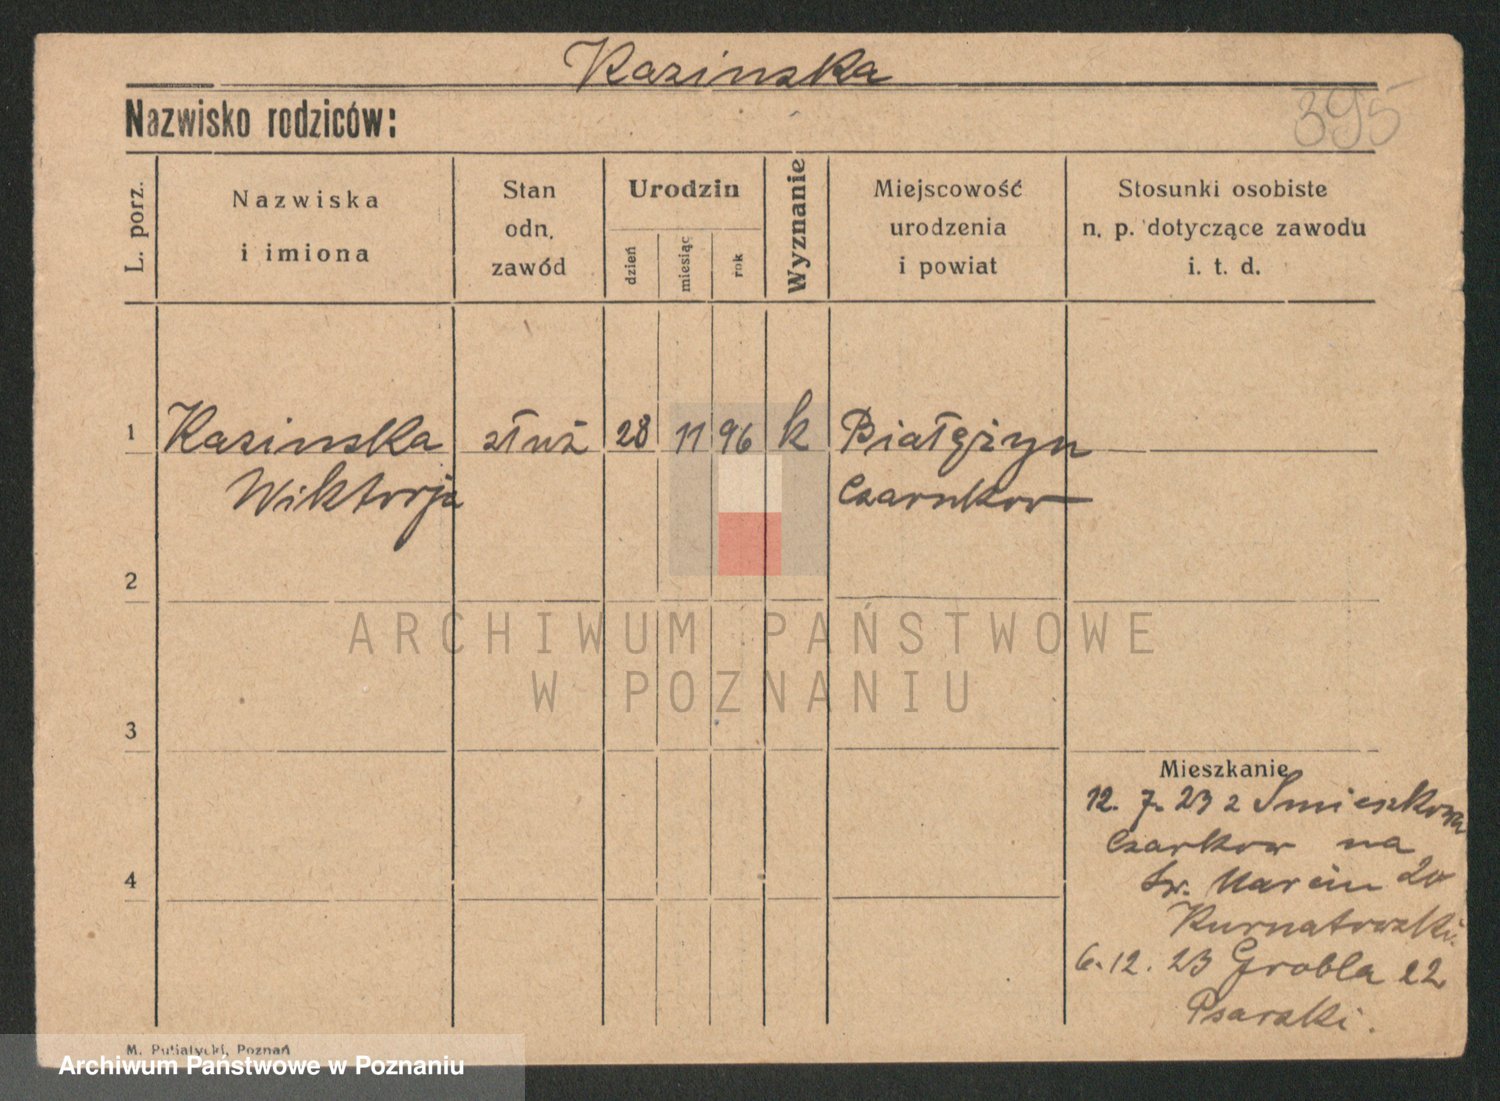 Kazinska
Nazwisko rodziców:
395
L. porz.
Nazwiska
i imiona
Stan
odn.
zawód
Urodzin
dzień
miesiąc
rok
Wyznanie
Miejscowość
urodzenia
i powiat
Stosunki osobiste
n. p. dotyczące zawodu
i. t. d.
1
Kazinska
Wiktorja
służ
28
11
96
k
Białężyn
Czarnkow
2
3
4
ARCHIWUM PAŃSTWOWE
W POZNANIU
Mieszkanie
12. 7. 23 z Smieszkowa
Czarkow na
Św. Marcin 20
Kurnatowski
6. 12. 23 Grobla 22
Psarski.
M. Putiatycki, Poznań
Archiwum Państwowe w Poznaniu